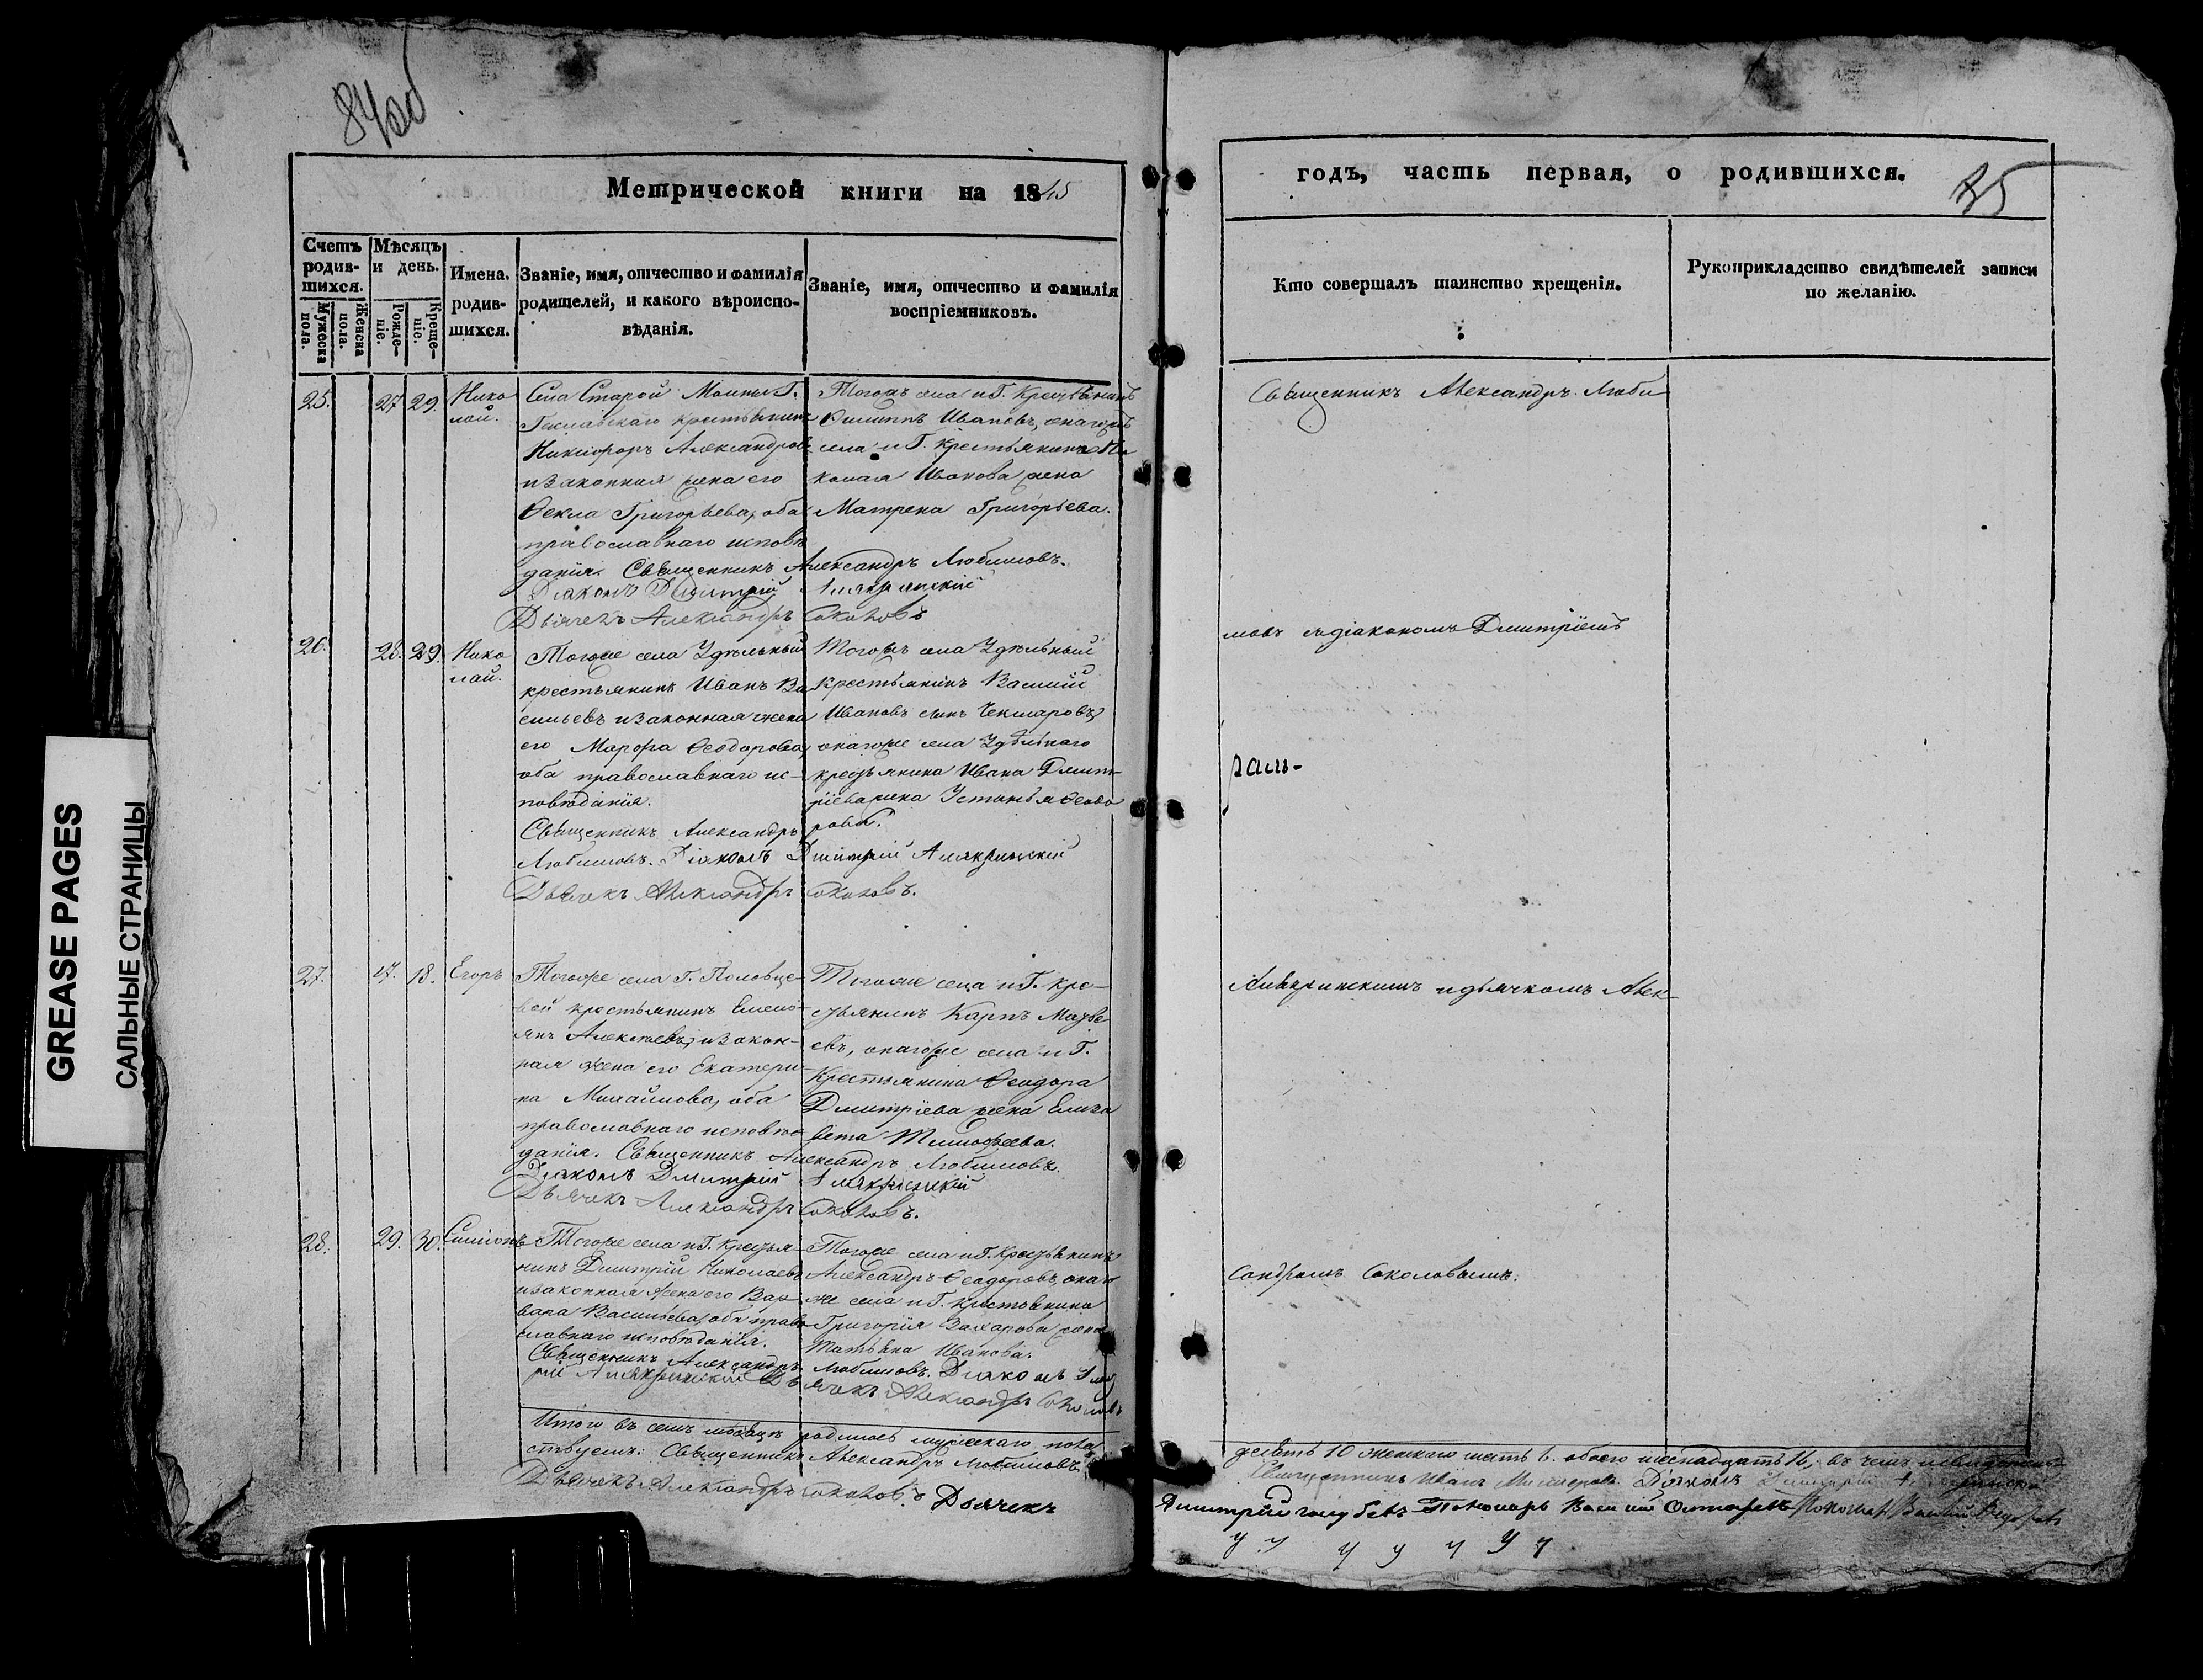 84 об
Метрической книги на 1845
Счетъ родив-шихся.
Мужеска пола.
Женска пола.
Мѣсяцъ и день.
Рожде-ніе.
Креще-ніе.
Имена родив-шихся.
Званіе, имя, отчество и фамилія родителей, и какого вѣроиспо-вѣданія.
Званіе, имя, отчество и фамилія воспріемниковъ.
25. 27 29. Нико
лай.
Села Старой Г.
крестьянинъ
Никифоръ Александровъ
и законная жена его
Ѳекла Григорьева, оба
православнаго исповѣ
данія. Священникъ Александръ Любимовъ.
Діаконъ Дмитрій Алякринскій
Дьячекъ Александръ Соколовъ
Тогожъ села и Г. Крестьянинъ
Филиппъ Ивановъ, она тогожъ
села и Г. крестьянина Ни
колая Иванова жена
Матрена Григорьева.
26. 28. 29. Нико
лай.
Тогоже села Удѣльный
крестьянинъ Иванъ Ва
сильевъ и законная жена
его Марфа Ѳеодорова,
оба православнаго ис-
повѣданія.
Священникъ Александръ
Любимовъ. Діаконъ Дмитрій Алякринскій
Дьячекъ Александръ Соколовъ.
Тогожъ села Удѣльный
крестьянинъ Василій
Ивановъ сынъ Чекмаровъ,
она тогоже села Удѣльнаго
крестьянина Ивана Дмит-
ріева жена Устинья Ѳеодо
рова.
27. 17. 18. Егоръ
Тогоже села Г. Половце-
вой крестьянинъ Емель-
янъ Алексѣевъ, и закон-
ная жена его Екатери-
на Михайлова, оба
православнаго исповѣ-
данія. Священникъ Александръ Любимовъ.
Діаконъ Дмитрій Алякринскій
Дьячекъ Александръ Соколовъ.
Тогоже села и Г. кре-
стьянинъ Карпъ Матве
евъ, она тогоже села и Г.
Крестьянина Ѳеодора
Дмитріева жена Елиза
вета Тимофеева.
28. 29. 30. Симіонъ
Тогоже села и Г. крестья-
нинъ Дмитрій Николаевъ
и законная жена его Вар-
вара Васильева, оба право
славнаго исповѣданія.
Священникъ Александръ Любимовъ. Діаконъ Дмит
рій Алякринскій Дьячекъ Александръ Соколовъ
Тогоже села и Г. Крестьянинъ
Александръ Ѳеодоровъ, она то
же села и Г. крестьянина
Григорія Захарова жена
Татьяна Иванова.
Итого въ семъ мѣсяцѣ родилось мужескаго пола
ствуемъ: Священникъ Александръ Любимовъ.
Дьячекъ Александръ Соколовъ. Дьячекъ
годъ, часть первая, о родившихся.
85
Кто совершалъ таинство крещенія.
Рукоприкладство свидѣтелей записи по желанію.
Священникъ Александръ Люби
мовъ съ діакономъ Дмитріемъ
Алякринскимъ и дьячкомъ Алек-
сандромъ Соколовымъ.
десять 10 женскаго шесть 6. обоего шеснадцать 16, въ чемъ
Священникъ Иванъ Діаконъ Дмитрій
Дмитрій Голубевъ Пономарь Василій Пономарь Василій
GREASE PAGES
САЛЬНЫЕ СТРАНИЦЫ